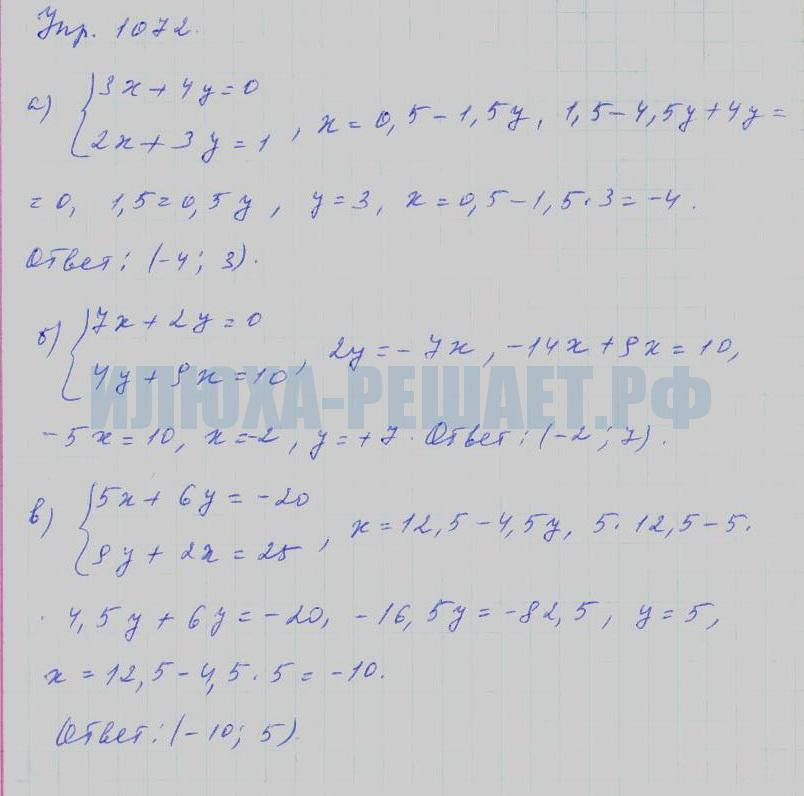 Упр. 1072.
а) {3x + 4y = 0
{2x + 3y = 1, x = 0,5 - 1,5y, 1,5 - 4,5y + 4y =
= 0, 1,5 = 0,5y, y = 3, x = 0,5 - 1,5 · 3 = -4.
Ответ: (-4; 3).
б) {7x + 2y = 0
{4y + 9x = 10, 2y = - 7x, -14x + 9x = 10,
ИЛЮХА-РЕШАЕТ.РФ
-5x = 10, x = -2, y = +7. Ответ: (-2; 7).
в) {5x + 6y = -20
{9y + 2x = 25, x = 12,5 - 4,5y, 5 · 12,5 - 5 ·
· 4,5y + 6y = -20, -16,5y = -82,5, y = 5,
x = 12,5 - 4,5 · 5 = -10.
Ответ: (-10; 5).